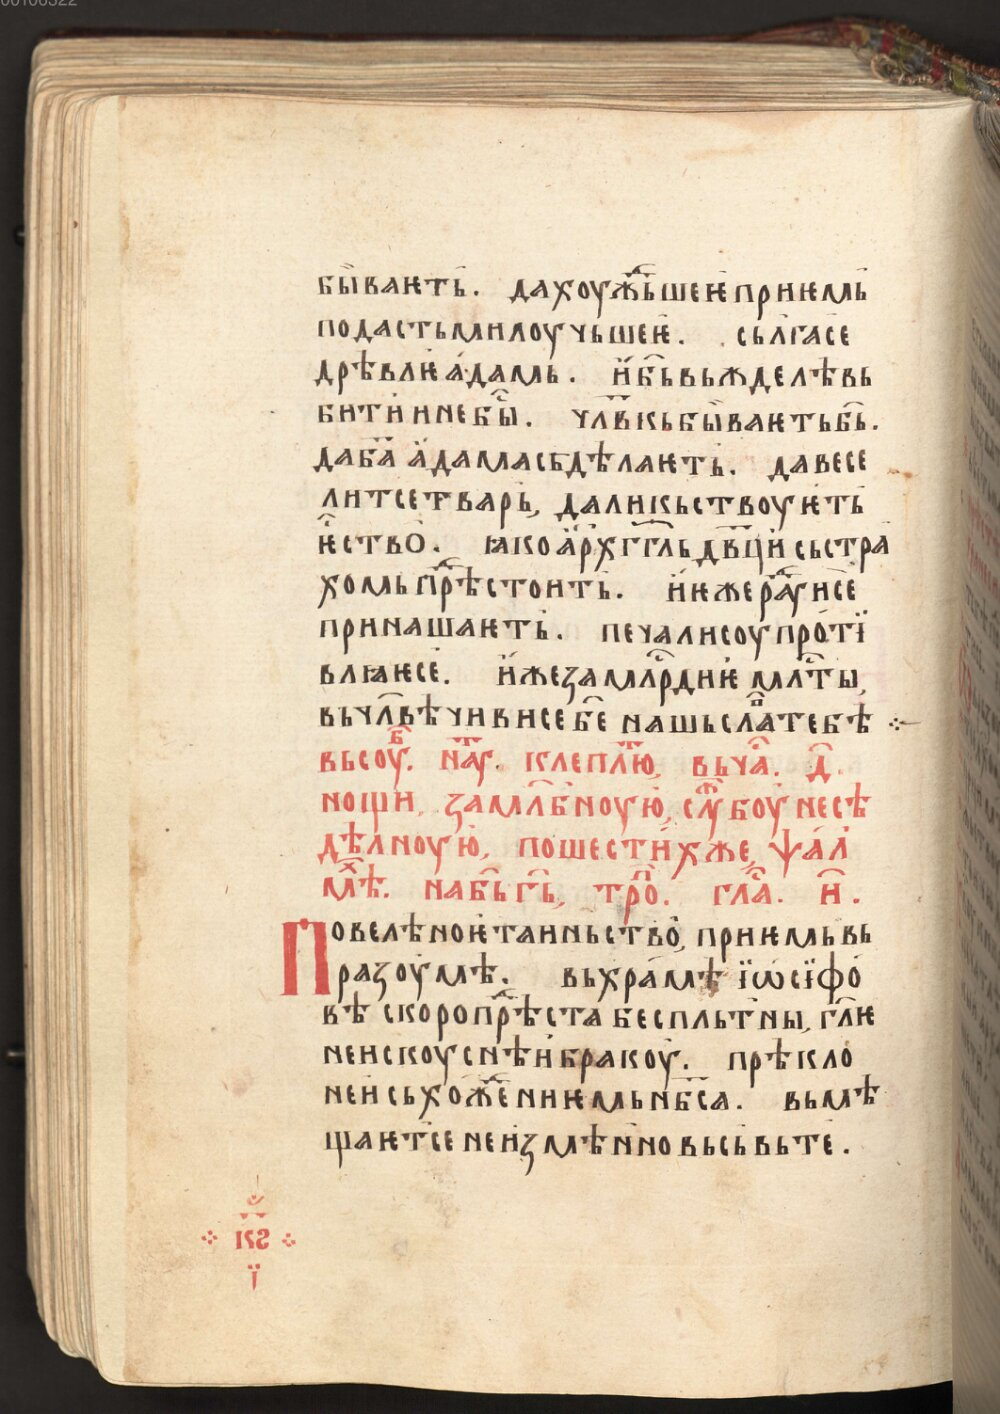 бываѥть. да хоужⷣьшеѥ приѥмь
подасть ми лоучьшеѥ. сьлга се
дрѣвлѥ адамь. и бь вьжделѣвь
бити и не быⷭ. чл҃вкь бываѥть б҃ь.
да б҃а адама сьдѣлаѥть. да весе
лит се тварь, да ликьствоуѥть
ѥⷭство. ꙗко арх҃гг҃ль дв҃ци сь стра
хомь прѣⷣстоить. и ѥже раⷣуи се
принашаѥть. печали соупроти
влꙗѥ се. иже за млⷭрдиѥ млⷭты,
вьчл҃вѣчивы се б҃е нашь слаⷡ тебѣ
вь соуⷠ. наⷱ. клеплюⷮ, вь чаⷭ. д҃.
нощи, за млⷭбноую, слоуⷤбоу не сѣ
дѣлноую, по шестихже, ѱал҃
мѣⷯ. на бь г҃ь, троⷫ. глаⷭ. и҃.
Повелѣноѥ таиньство, приѥмь вь
разоумѣ. вь храмѣ їѡсїфо
вѣ скоро прѣⷣста беспльтны, гл҃ѥ
неискоуснѣи бракоу. прѣкло
неи сьхожⷣениѥмь нб҃са. вьмѣ
щаѥт се неизмѣнно вьсь вь те.
00108322